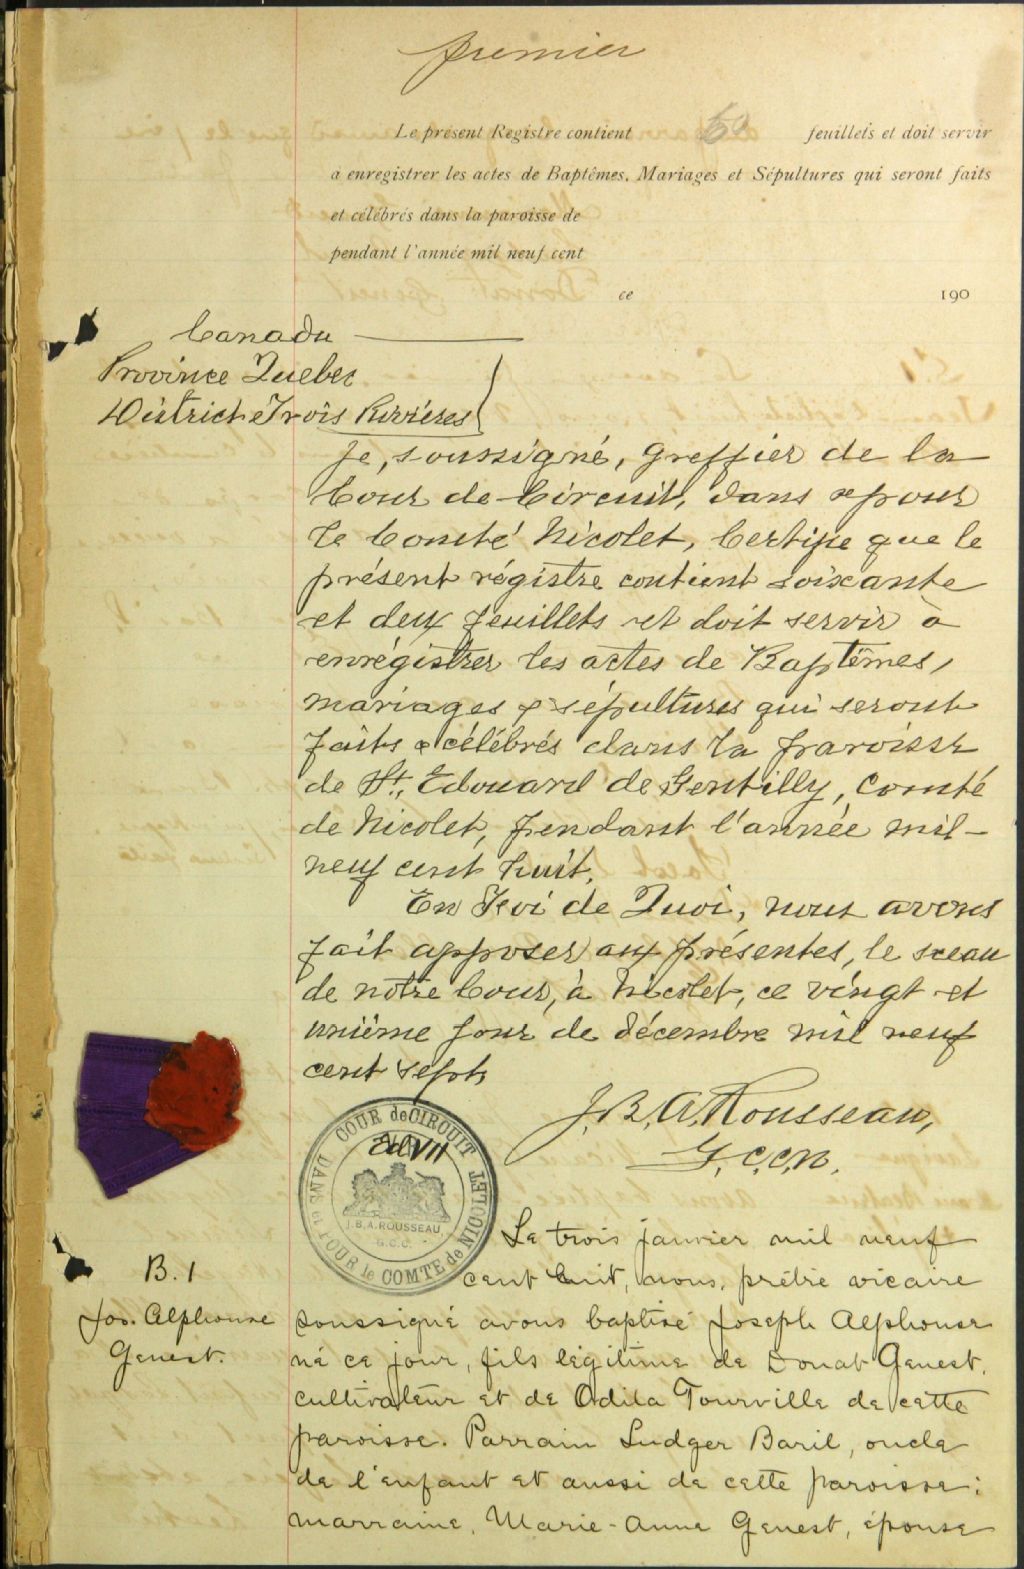 premier
Le présent Registre contient 60 feuillets et doit servir
a enregistrer les actes de Baptêmes, Mariages et Sépultures qui seront faits
et célébrés dans la paroisse de
pendant l'année mil neuf cent
ce 190
Canada
Province Quebec
District Trois Rivières
Je, soussigné, Greffier de la
Cour de Circuit, dans & pour
le Comté Nicolet, Certifie que le
présent régistre contient soixante
et deux feuillets et doit servir à
enrégistrer les actes de Baptêmes,
mariages & sépultures qui seront
faits & célébrés dans la paroisse
de St. Edouard de Gentilly, comté
de Nicolet, pendant l'année mil-
neuf cent huit.
En Foi de Quoi, nous avons
fait apposer aux présentes, le sceau
de notre Cour, à Nicolet, ce vingt et
unième jour de décembre mil neuf
cent sept.
J. B. A. Rousseau,
G. C. C. N.
COUR de CIRCUIT
DANS et POUR le COMTE de NICOLET
Ed VII
J.B.A. ROUSSEAU
G.C.C.
B. 1
Jos. Alphonse
Genest.
Le trois janvier mil neuf
cent huit, nous, prêtre vicaire
soussigné avons baptisé Joseph Alphonse
né ce jour, fils légitime de Donat Genest,
cultivateur et de Odila Tourville de cette
paroisse. Parrain Ludger Baril, oncle
de l'enfant et aussi de cette paroisse;
marraine, Marie-Anne Genest, épouse